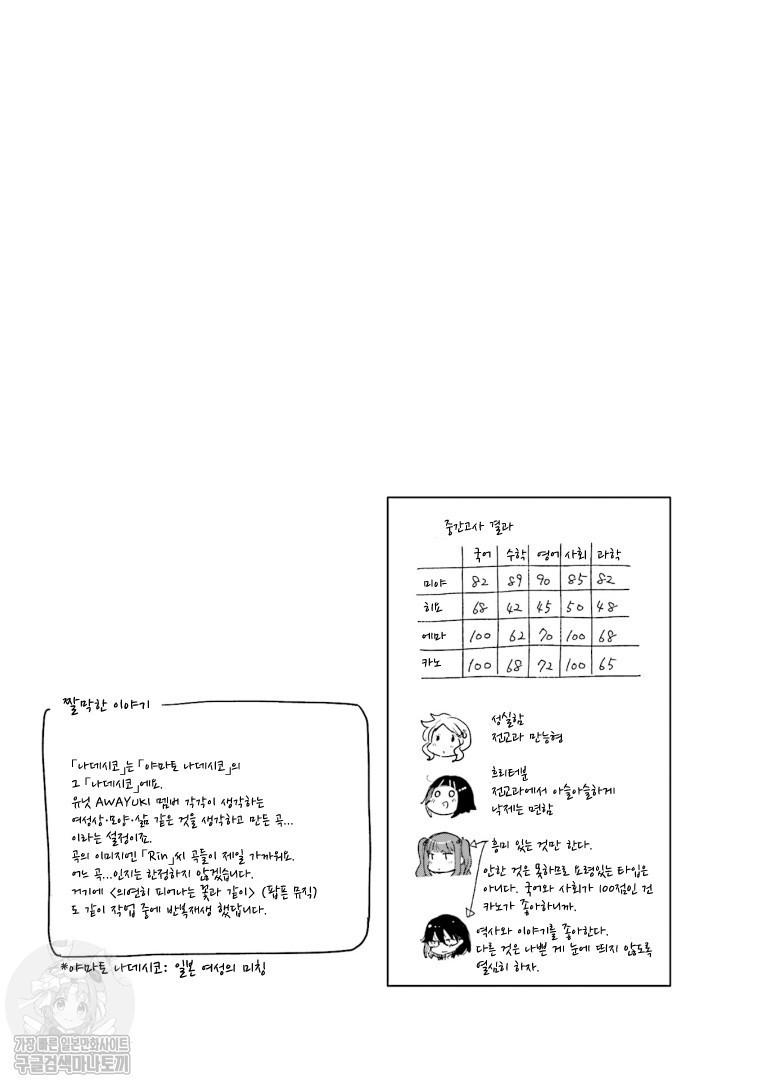 중간고사 결과
국어 수학 영어 사회 과학
미야 82 89 90 85 82
히요 68 42 45 50 48
에마 100 62 70 100 68
카노 100 68 72 100 65
성실함
전교과 만능형
흐리터분
전교과에서 아슬아슬하게
낙제는 면함
흥미 있는 것만 한다.
안한 것은 못하므로 요령있는 타입은
아니다. 국어와 사회가 100점인 건
카노가 좋아하니까.
역사와 이야기를 좋아한다.
다른 것은 나쁜 게 눈에 띄지 않도록
열심히 하자.
짤막한 이야기
「나데시코」는 「야마토 나데시코」의
그 「나데시코」에요.
유닛 AWAYUKI 멤버 각각이 생각하는
여성상·모양·삶 같은 것을 생각하고 만든 곡...
이라는 설정이죠.
곡의 이미지엔 「Rin」씨 곡들이 제일 가까워요.
어느 곡...인지는 한정하지 않겠습니다.
거기에 <의연히 피어나는 꽃과 같이> (팝픈 뮤직)
도 같이 작업 중에 반복재생 했답니다.
*야마토 나데시코: 일본 여성의 미칭
가장 빠른 일본만화사이트
구글검색마나토끼